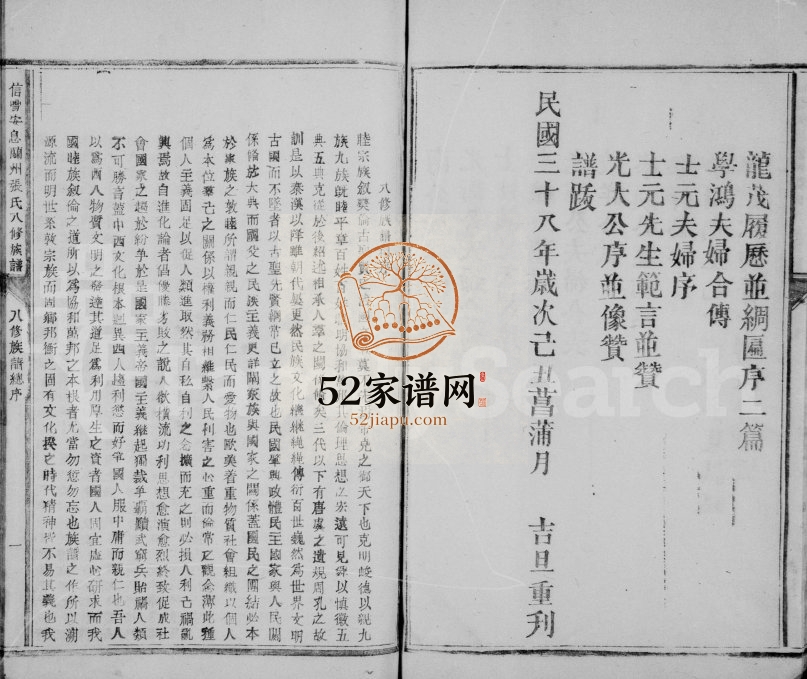 龍茂履歷並綢匾序二篇
學鴻夫婦合傳
士元夫婦序
士元先生範言並贊
光大公序並像贊
譜跋
民國三十八年歲次己丑菖蒲月 吉旦重刊
八修族譜
睦宗族敘彝倫古 之御天下也克明峻德以親九
族九族旣睦平章百姓 明協和 倫理思想之宏遠可見舜以愼徽五
典五典克從於後紹述相承人羣之關係 矣三代以下有唐虞之遺規周孔之故
訓是以秦漢以降雖朝代屢更然民族文化繼繼繩繩傳衍百世巍然爲世界文明
古國而不墜者以古聖先賢綱常已立之故也民國肇興政體民主國家與人民關
係倫於大典而國父之民族主義更詳闡家族與國家之關係蓋國民之團結必本
於家族之敦睦所謂親親而仁民仁民而愛物也歐美着重物質社會組織以個人
爲本位羣己之關係以權利義務相維繫人民利害之心重而倫常之觀念薄此種
個人主義固足以促人類進取然其自私自利之念擴而充之則必損人利己禍亂
興焉故自進化論者倡優勝劣敗之說人欲橫流功利思想愈演愈烈終致促成社
會國家之趨於紛爭於是國家主義帝國主義繼起獨裁爭霸黷武窮兵貽禍人類
不可勝言蓋中西文化根本迥異西人趨利慾而好爭國人服中庸而親仁也吾人
以爲西人物質文明之發達其道足爲利用厚生之資者國人固宜虛心硏求而我
國睦族敘倫之道所以爲協和萬邦之本根者尤當勿愆勿忘也族譜之作所以溯
源流而明世系敦宗族而固鄉邦衛之固有文化揆之時代精神皆不易其義也我
信豐安息蘭州張氏八修族譜
八修族譜總序
一
52家谱网
52jiapu.com
Search